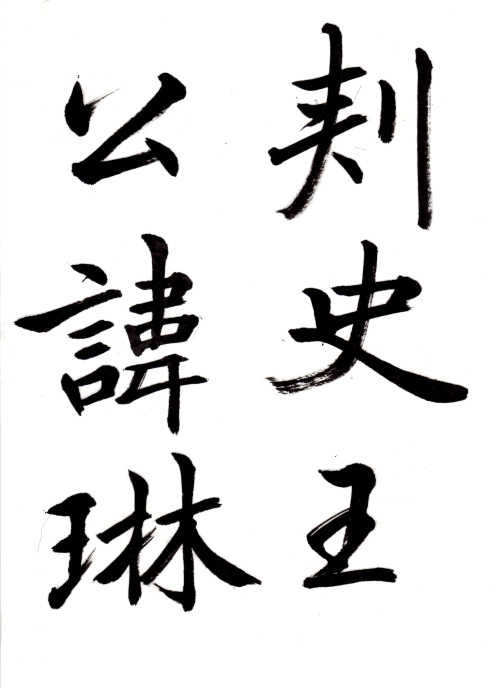 刾史王
公諱琳